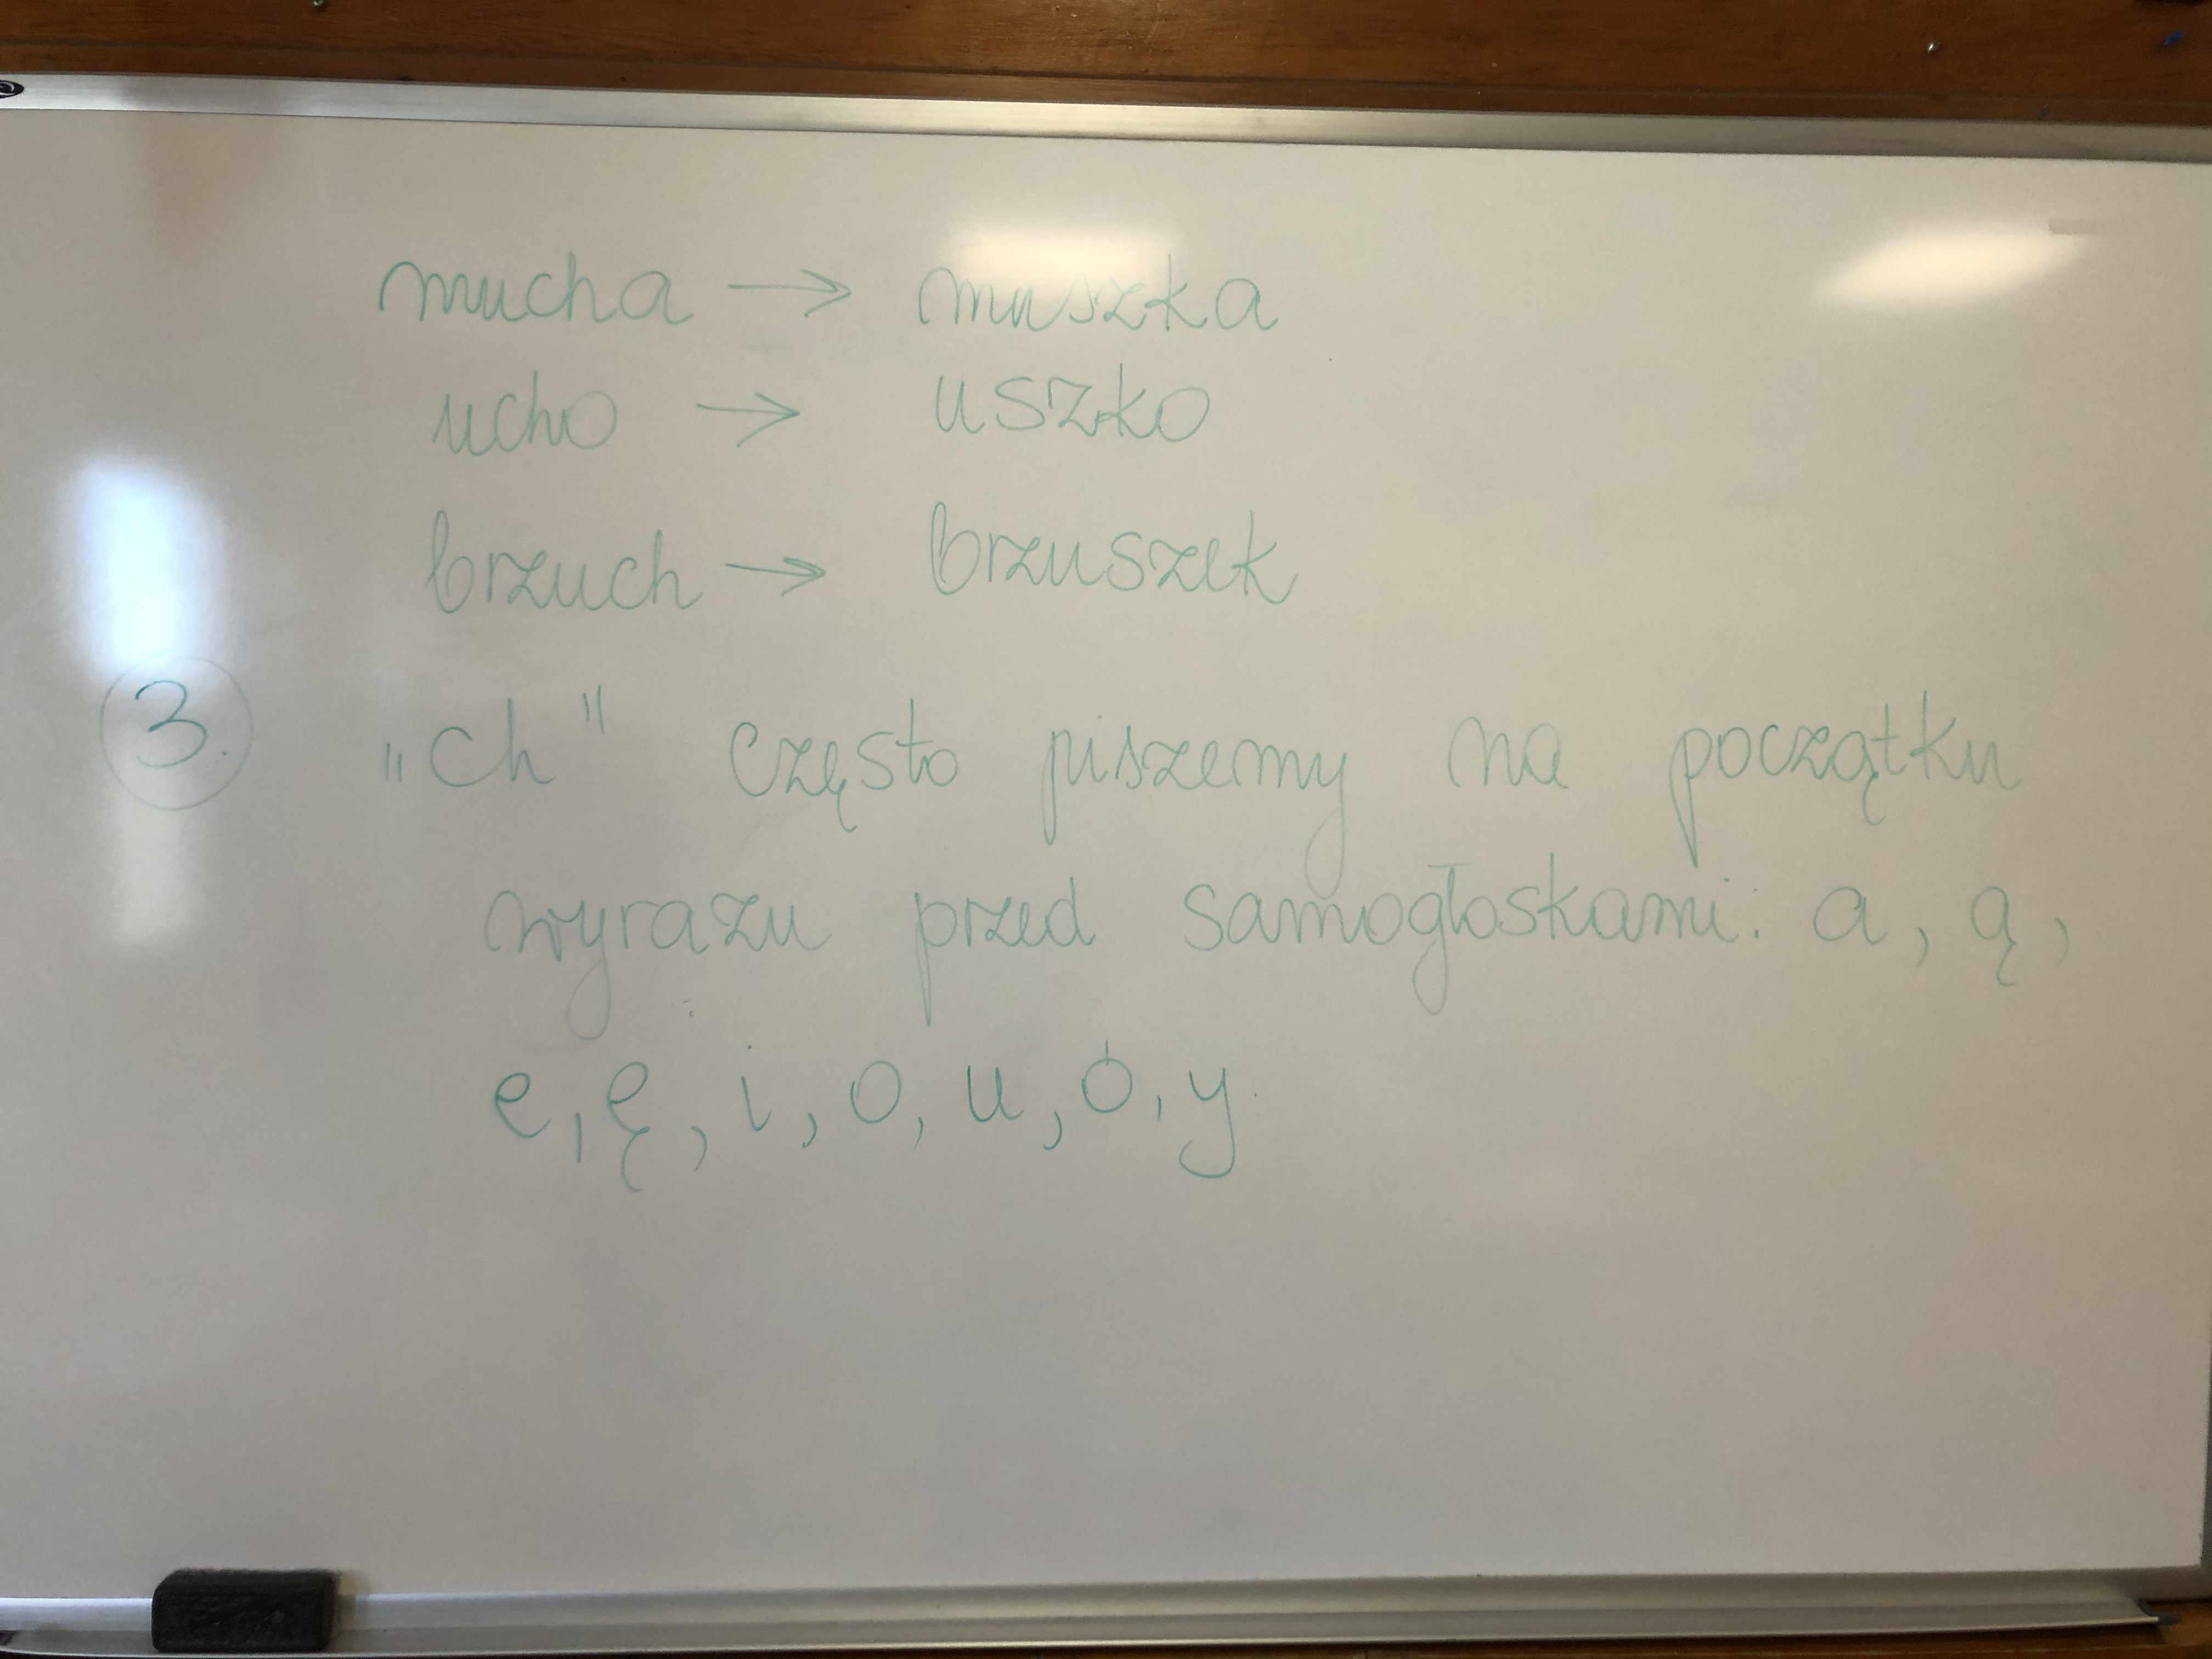 mucha → muszka
ucho → uszko
brzuch → brzuszek
3. „ch" często piszemy na początku
wyrazu przed samogłoskami: a, ą,
e, ę, i, o, u, ó, y.